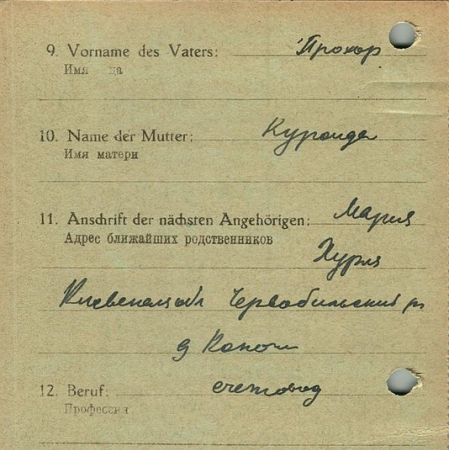 9. Vorname des Vaters: Прохор
Имя отца
10. Name der Mutter: Куронда
Имя матери
11. Anschrift der nächsten Angehörigen: Мария
Адрес ближайших родственников
Киевская обл Чернобильский р
д
12. Beruf: счетовод
Профессия